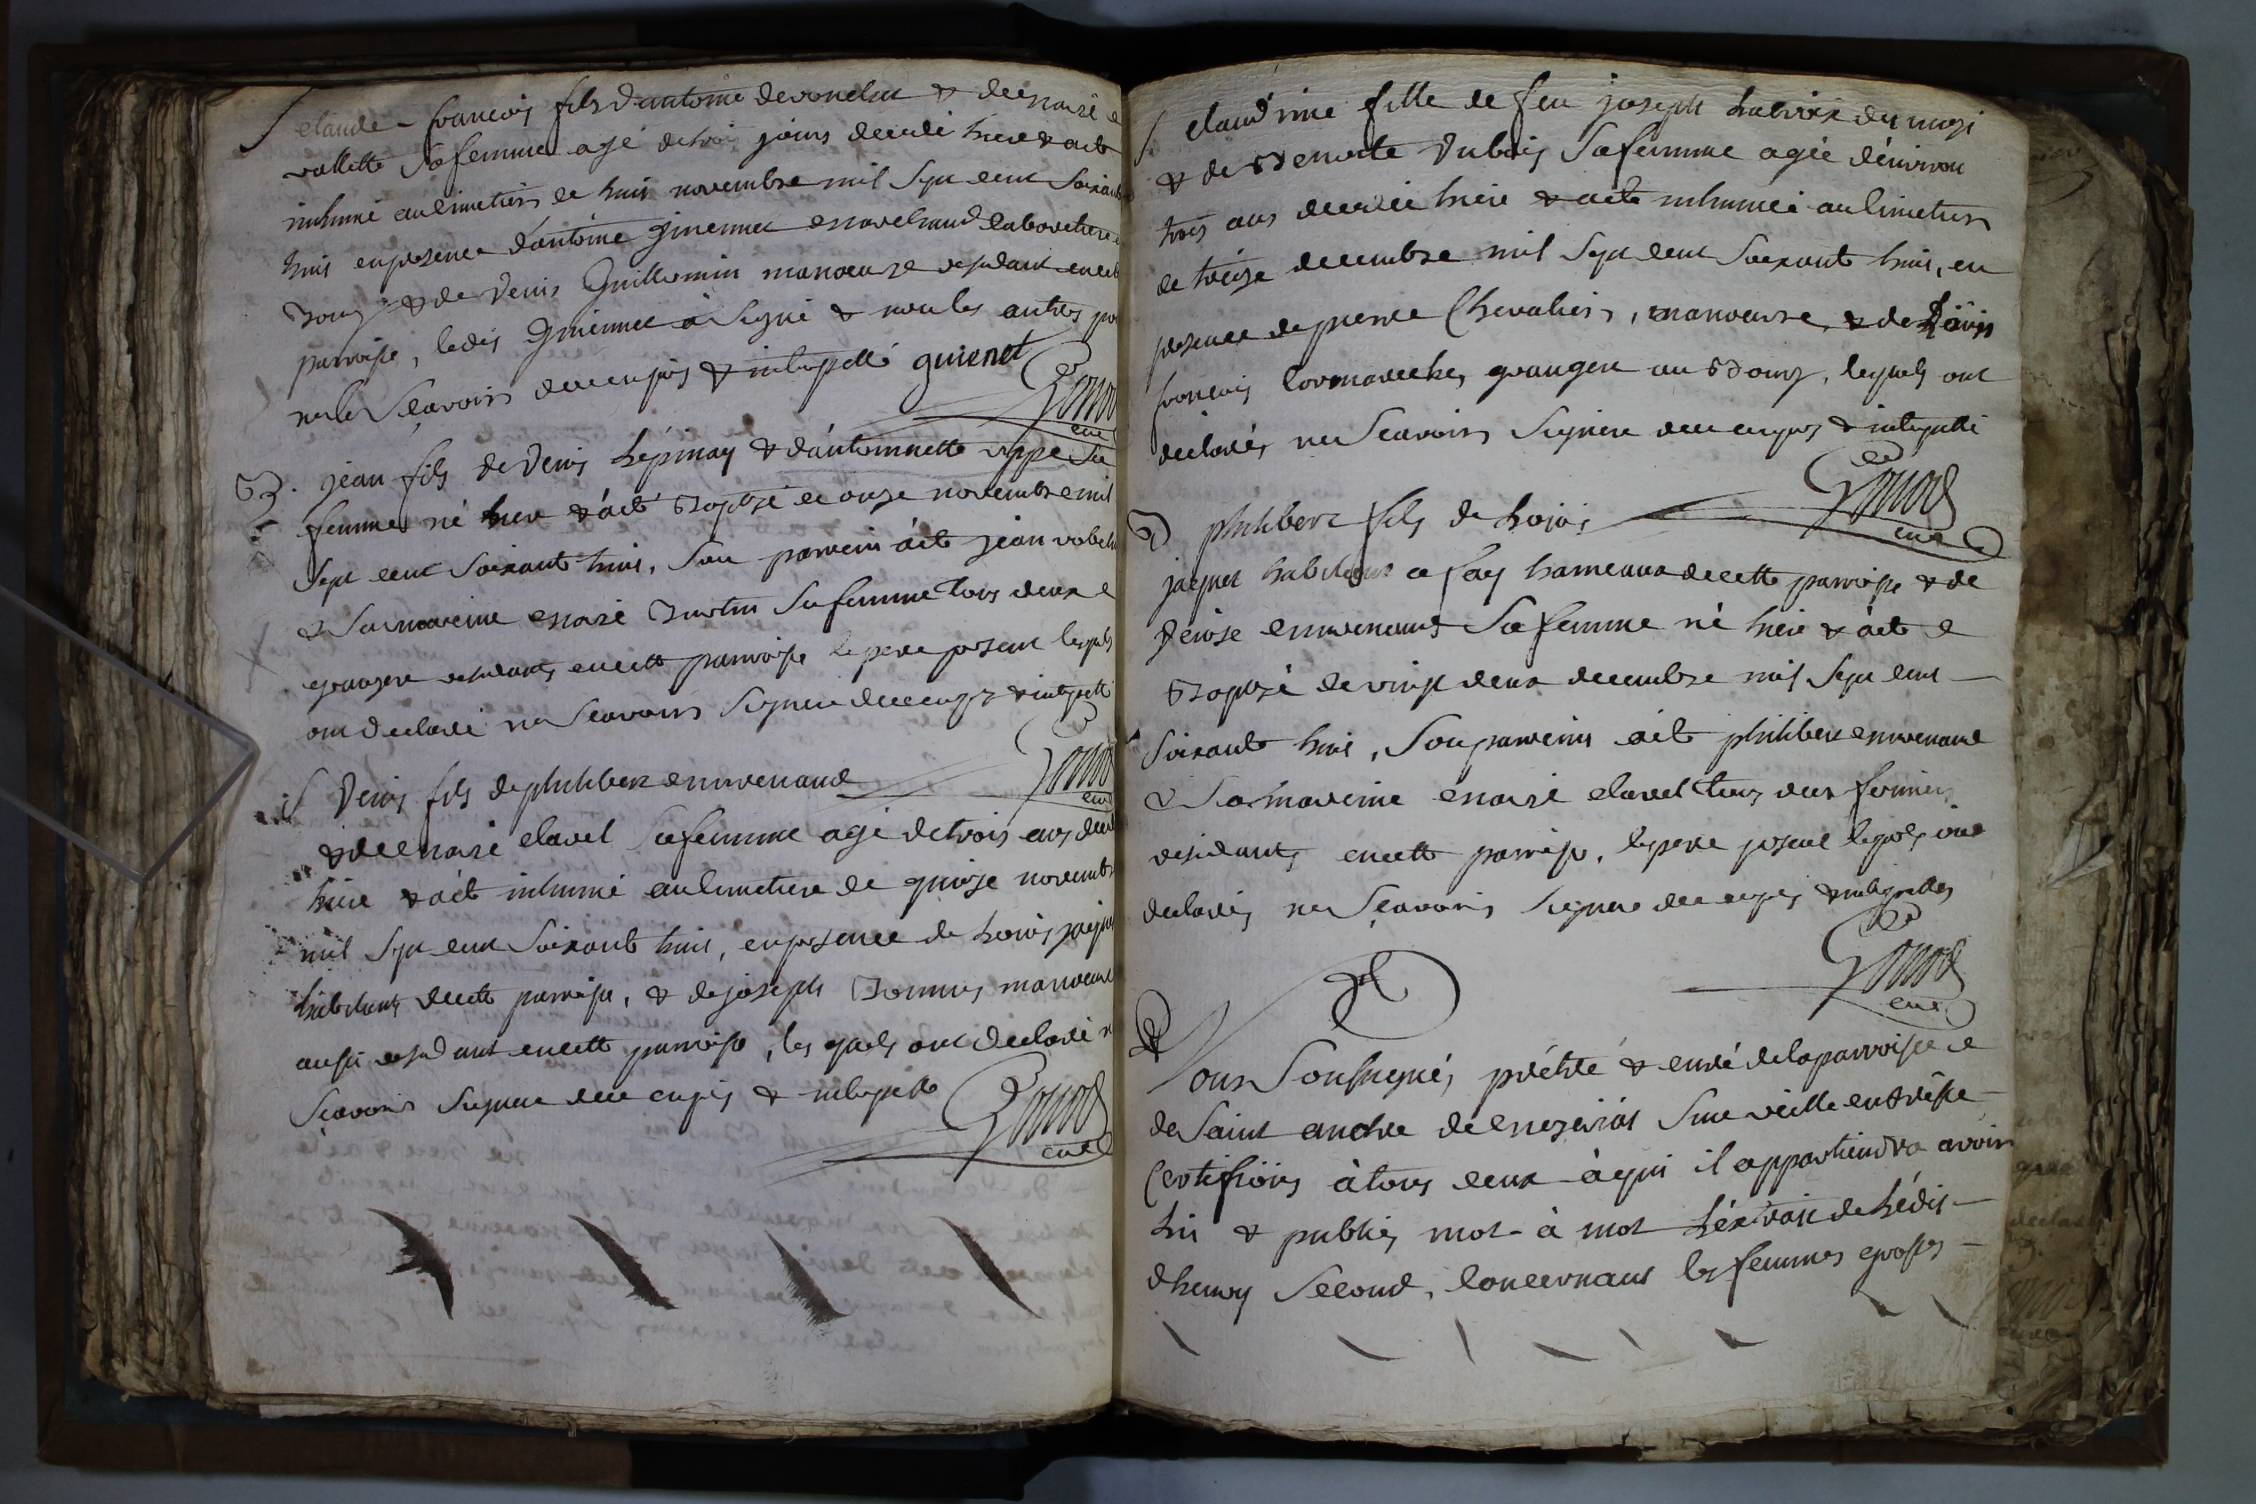 S claude francois fils d'antoine devonclut & de marie
vallette Sa femme agé de trois jours decedé hiere & a été
inhumé au cimetiere le huit novembre mil Sept cent Soixante
huit en presence d'antoine guiennet marechand
Bourg & de Denis Guillemin manoeuvre residant en cette
parroisse, ledit Guiennet a Signé & non les autres pour
ne le Scavoir de ce enquis & interpellé guienet
Gonod
curé
B. jean fils de Denis Lépinay & d'antoinnette Sa
femme né hier & a été Baptisé le onze novembre mil
Sept cent Soixante huit, Son parrein a été jean
& Sa marreine marie Sa femme tous deux
grangere residants en cette parroisse le pere present lesquels
ont declaré ne Scavoir Signer de ce enquis & interpellé
Gonod
curé
S Denis fils de philibert
& de marie clavel Sa femme agé de trois ans decedé
hiere & a été inhumé au cimetiere le quinze novembre
mil Sept cent Soixante huit, en presence de Louis jaquet
habitant de cette parroisse, & de joseph manoeuvre
aussi residant en cette parroisse, les quels ont declaré ne
Scavoir Signer de ce enquis & interpellé
Gonod
curé
S. claudrine fille de feu joseph
& de Benoite Dubois Sa femme agée d'environ
trois ans decedée hiere & a été inhumée au cimetiere
le treize decembre mil Sept cent Soixante huit, en
presence de pierre Chevalier, manoeuvre, & de
francois Cormareche, granger au Bourg, lesquels ont
declarés ne Scavoir Signer de ce enquis & interpellé
Gonod
curé
B philibert fils de Loüis
jaquet habitant a fay hameaux de cette parroisse & de
Denise Sa femme né hiere & a été
Baptisé le vingt deux decembre mil Sept cent
Soixante huit, Son parrein a été philibert
& Sa mareine marie clavel tous deux fermiers
residants en cette parroisse, le pere present lesquels ont
declarés ne Scavoir Signer de ce enquis & interpellés
Gonod
curé
Nous Soussignés prêtre & curé de la parroisse
de Saint andre de mezeriat Sure veille en Bresse
Certifions à tous ceux à qui il appartiendra avoir
lu & publiés mot à mot l'éxtrait de l'édit
d'henry Second, concernant les femmes grosses